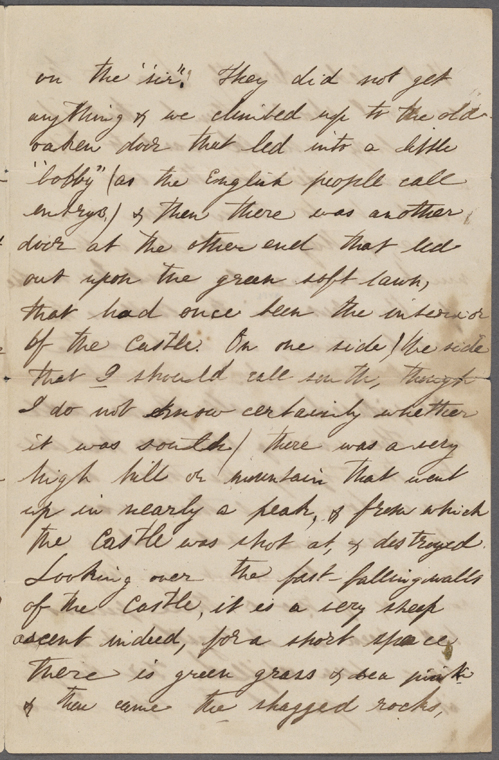 on the "sir"! They did not get
anything & we climbed up to the old
oaken door that led into a little
"lobby" (as the English people call
entrys.) & then there was another
door at the other end that led
out upon the green soft lawn,
that had once been the interior
of the castle. On one side (the side
that I should call south, though
I do not know certainly whether
it was south.) there was a very
high hill or mountain that went
up in nearly a peak, & from which
the castle was shot at, & destroyed.
Looking over the fast falling walls
of the castle, it is a very steep
ascent indeed, for a short space
there is green grass & sea pink
& then came the shagged rocks,